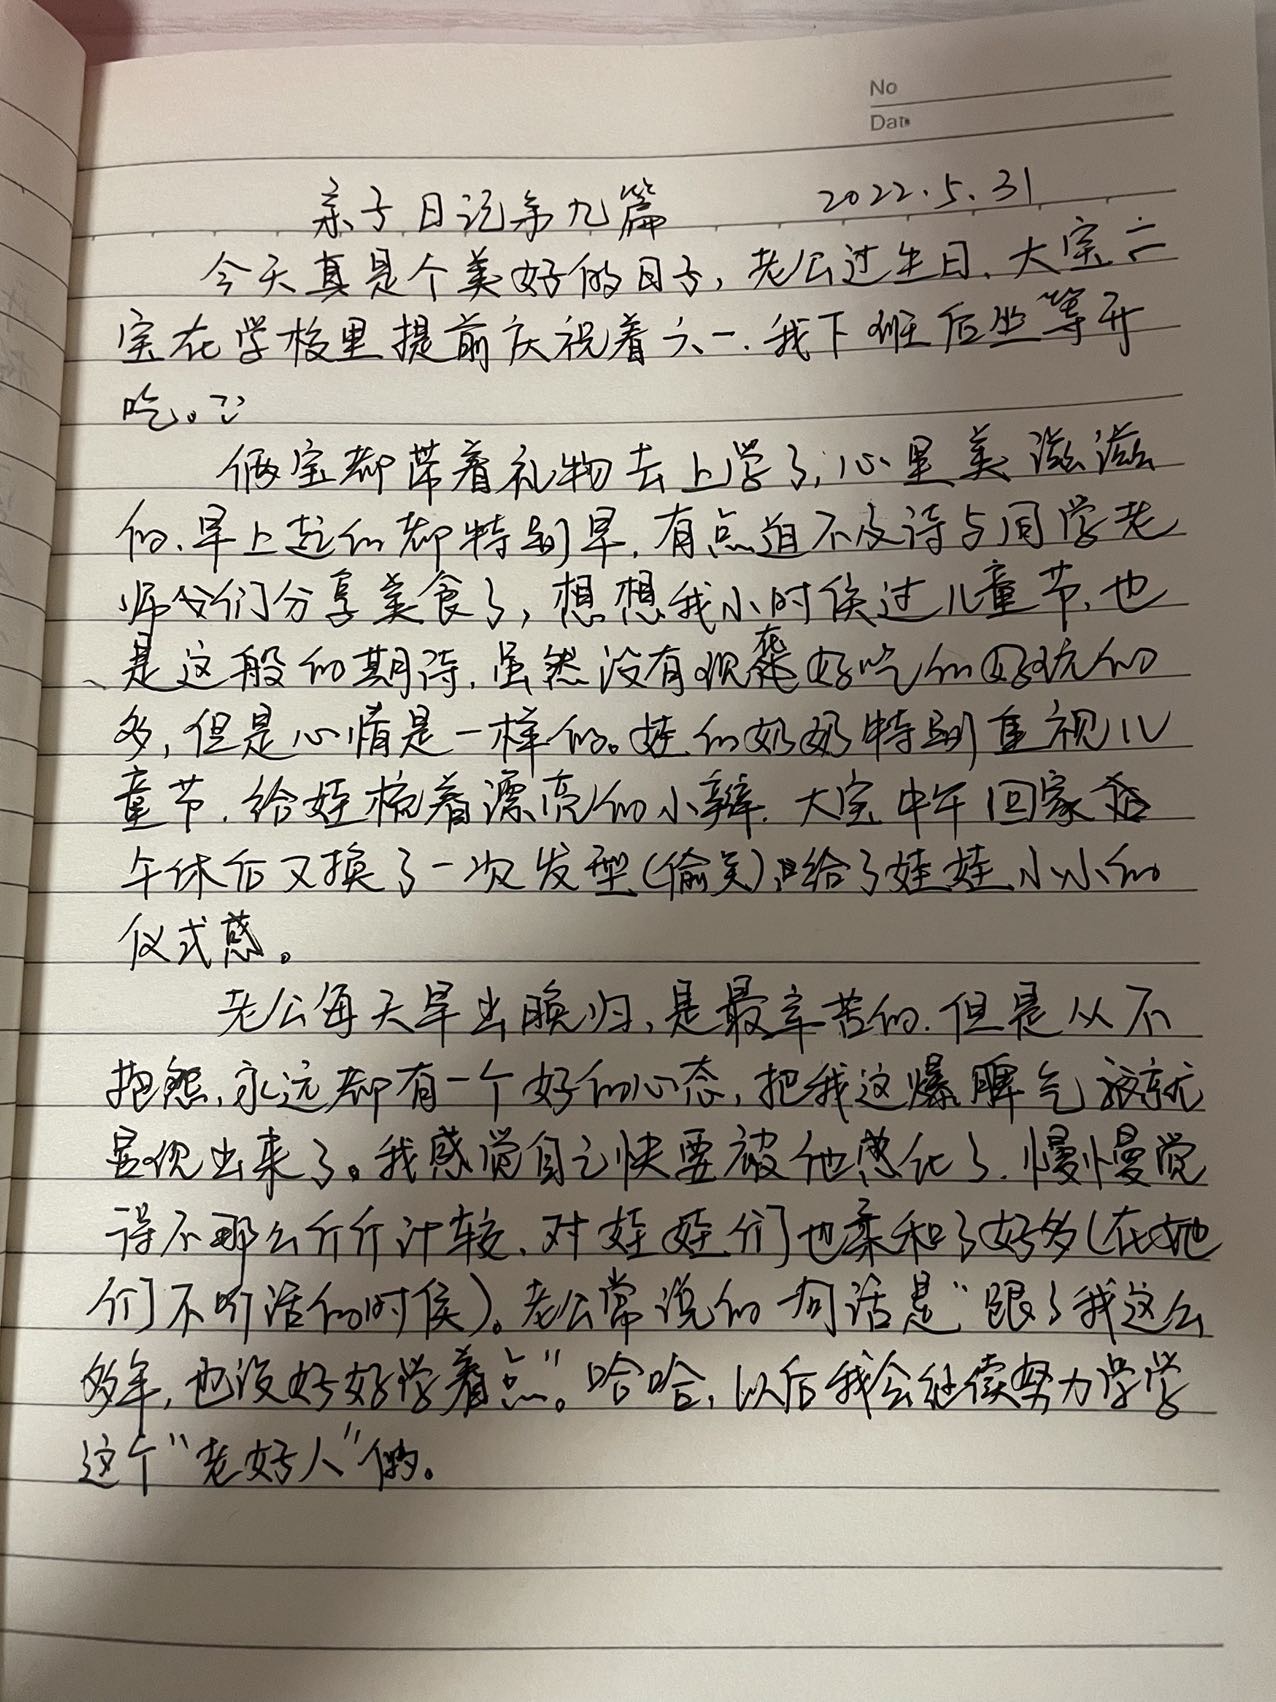 No
Date
亲子日记第九篇 2022.5.31
今天真是个美好的日子，老公过生日、大宝二
宝在学校里提前庆祝着六一.我下班后坐等开
吃。
俩宝都带着礼物去上学了，心里美滋滋
的、早上起的都特别早，有点迫不及待与同学老
师们分享美食了，想想我小时候过儿童节、也
是这般的期待，虽然没有现在好吃的好玩的
多，但是心情是一样的。娃的奶奶特别重视儿
童节，给娃梳着漂亮的小辫.大宝中午回家
午休后又换了一次发型(偷笑),给了娃娃小小的
仪式感。
老公每天早出晚归，是最辛苦的.但是从不
抱怨，永远都有一个好的心态，把我这爆脾气就
显现出来了。我感觉自己快要被他感化了.慢慢觉
得不那么斤斤计较、对娃娃们也柔和了好多(在她
们不听话的时候)。老公常说的一句话是"跟了我这么
多年，也没好好学着点"。哈哈，以后我会继续努力学学
这个"老好人"的。